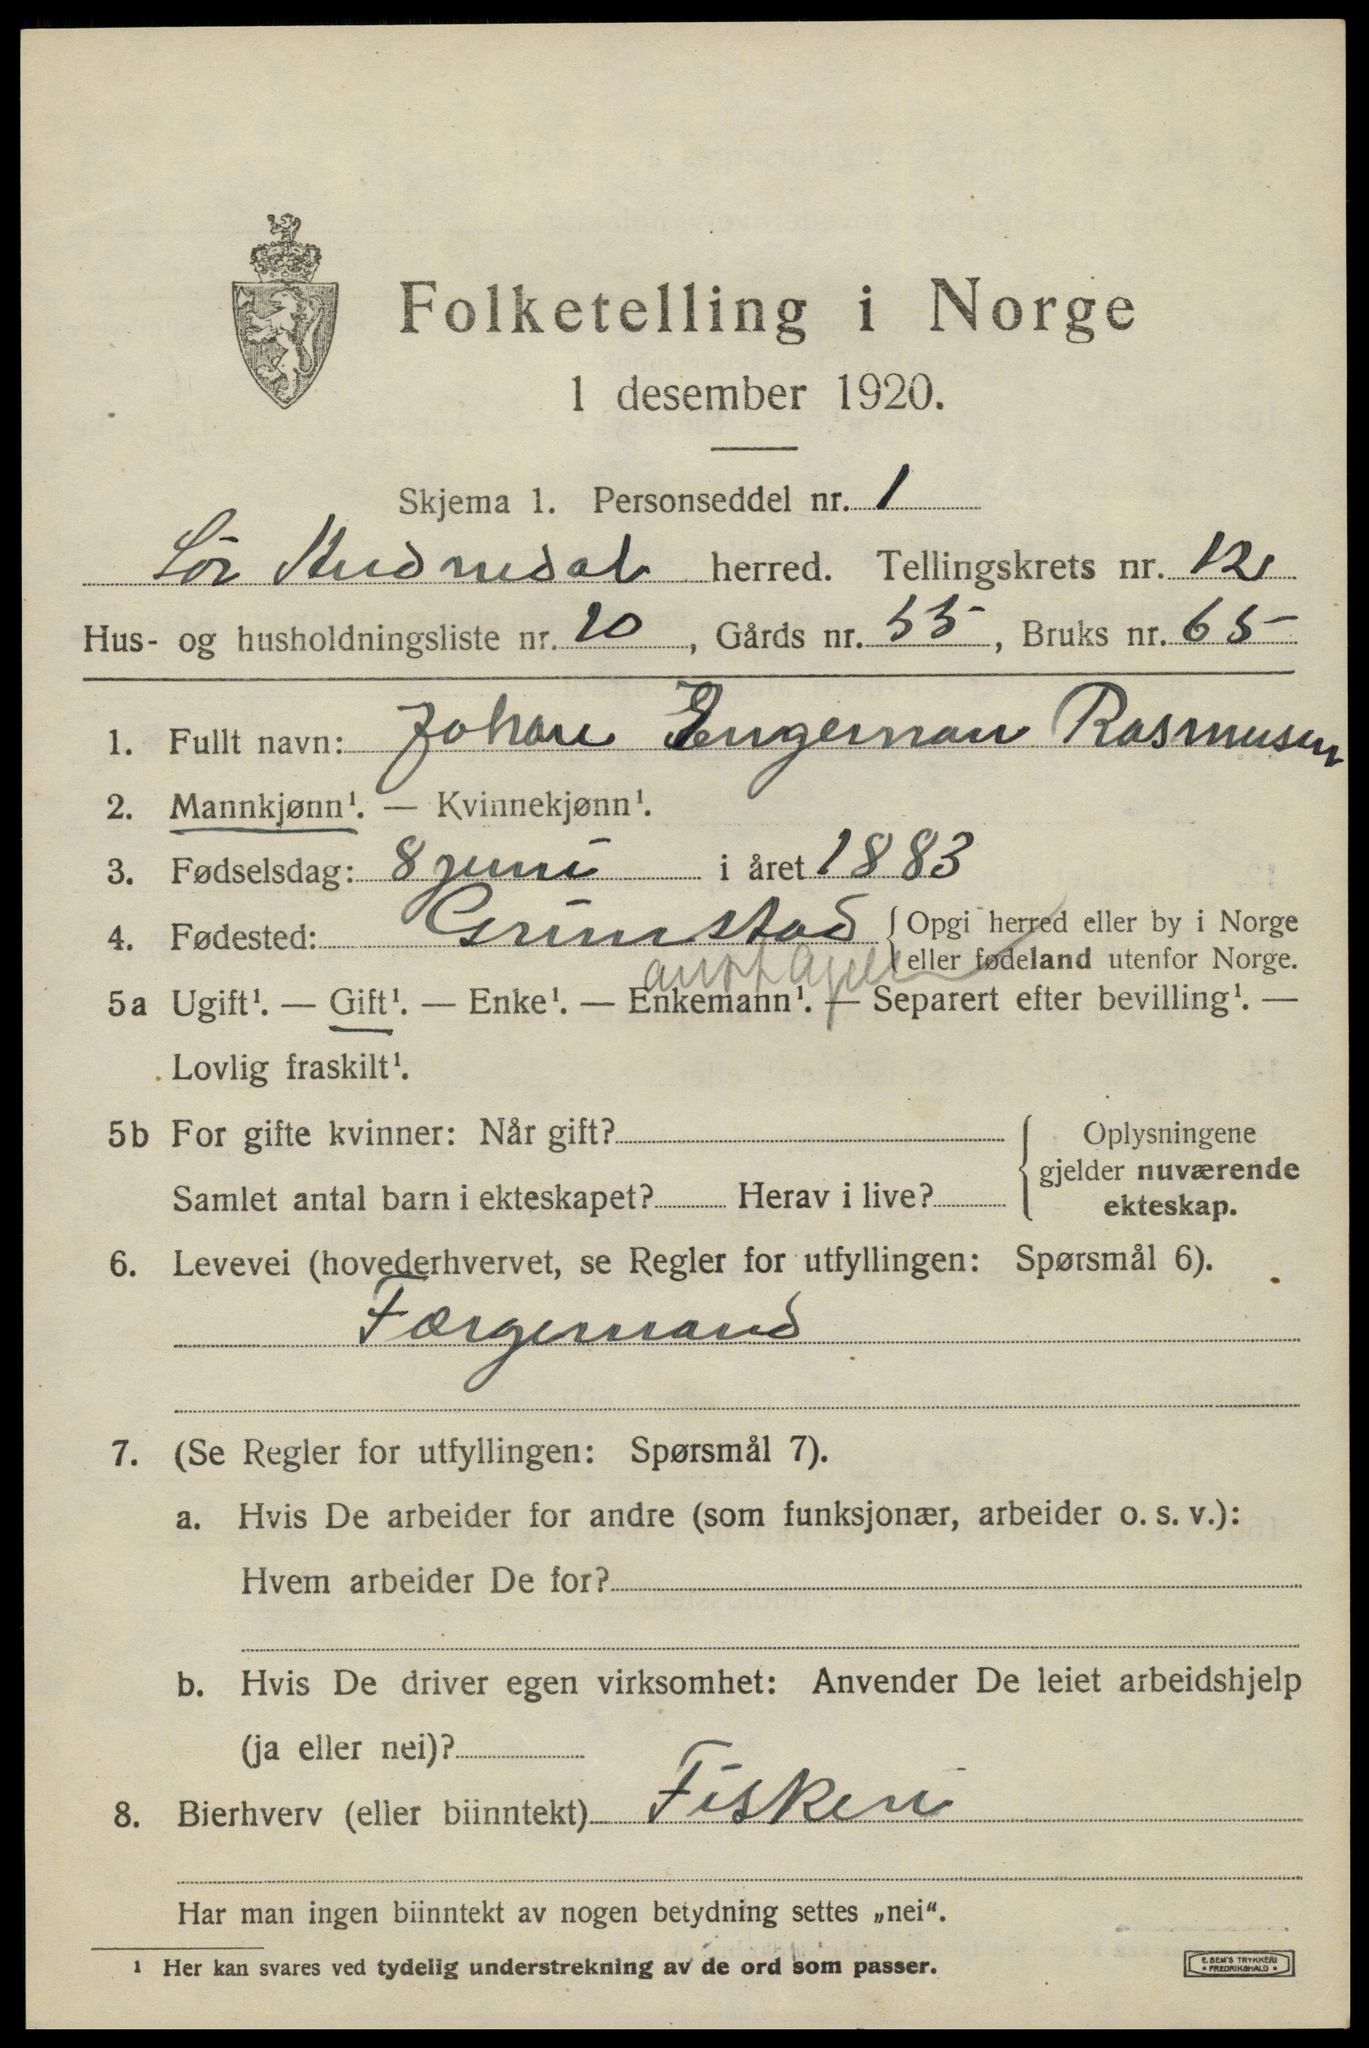 Folketelling i Norge
1 desember 1920.
Skjema 1. Personseddel nr. 1
Sör Audnedal herred. Tellingskrets nr. 12
Hus- og husholdningsliste nr. 20, Gårds nr. 55, Bruks nr. 65
1. Fullt navn: Johan Engernan Rasmusen
2. Mannkjønn¹. — Kvinnekjønn¹.
3. Fødselsdag: 8 juni i året 1883
4. Fødested: Grimstad {Opgi herred eller by i Norge
eller fødeland utenfor Norge.
5a Ugift¹. — Gift¹. — Enke¹. — Enkemann¹. — Separert efter bevilling¹. —
Lovlig fraskilt¹.
5b For gifte kvinner: Når gift? Oplysningene
gjelder nuværende
Samlet antal barn i ekteskapet? Herav i live? ekteskap.
6. Levevei (hovederhvervet, se Regler for utfyllingen: Spørsmål 6).
Færgemand
7. (Se Regler for utfyllingen: Spørsmål 7).
a. Hvis De arbeider for andre (som funksjonær, arbeider o. s. v.):
Hvem arbeider De for?
b. Hvis De driver egen virksomhet: Anvender De leiet arbeidshjelp
(ja eller nei)?
8. Bierhverv (eller biinntekt) Fiskeri
Har man ingen biinntekt av nogen betydning settes „nei“.
1 Her kan svares ved tydelig understrekning av de ord som passer.
E. SEM'S TRYKKERI
FREDRIKSHALD